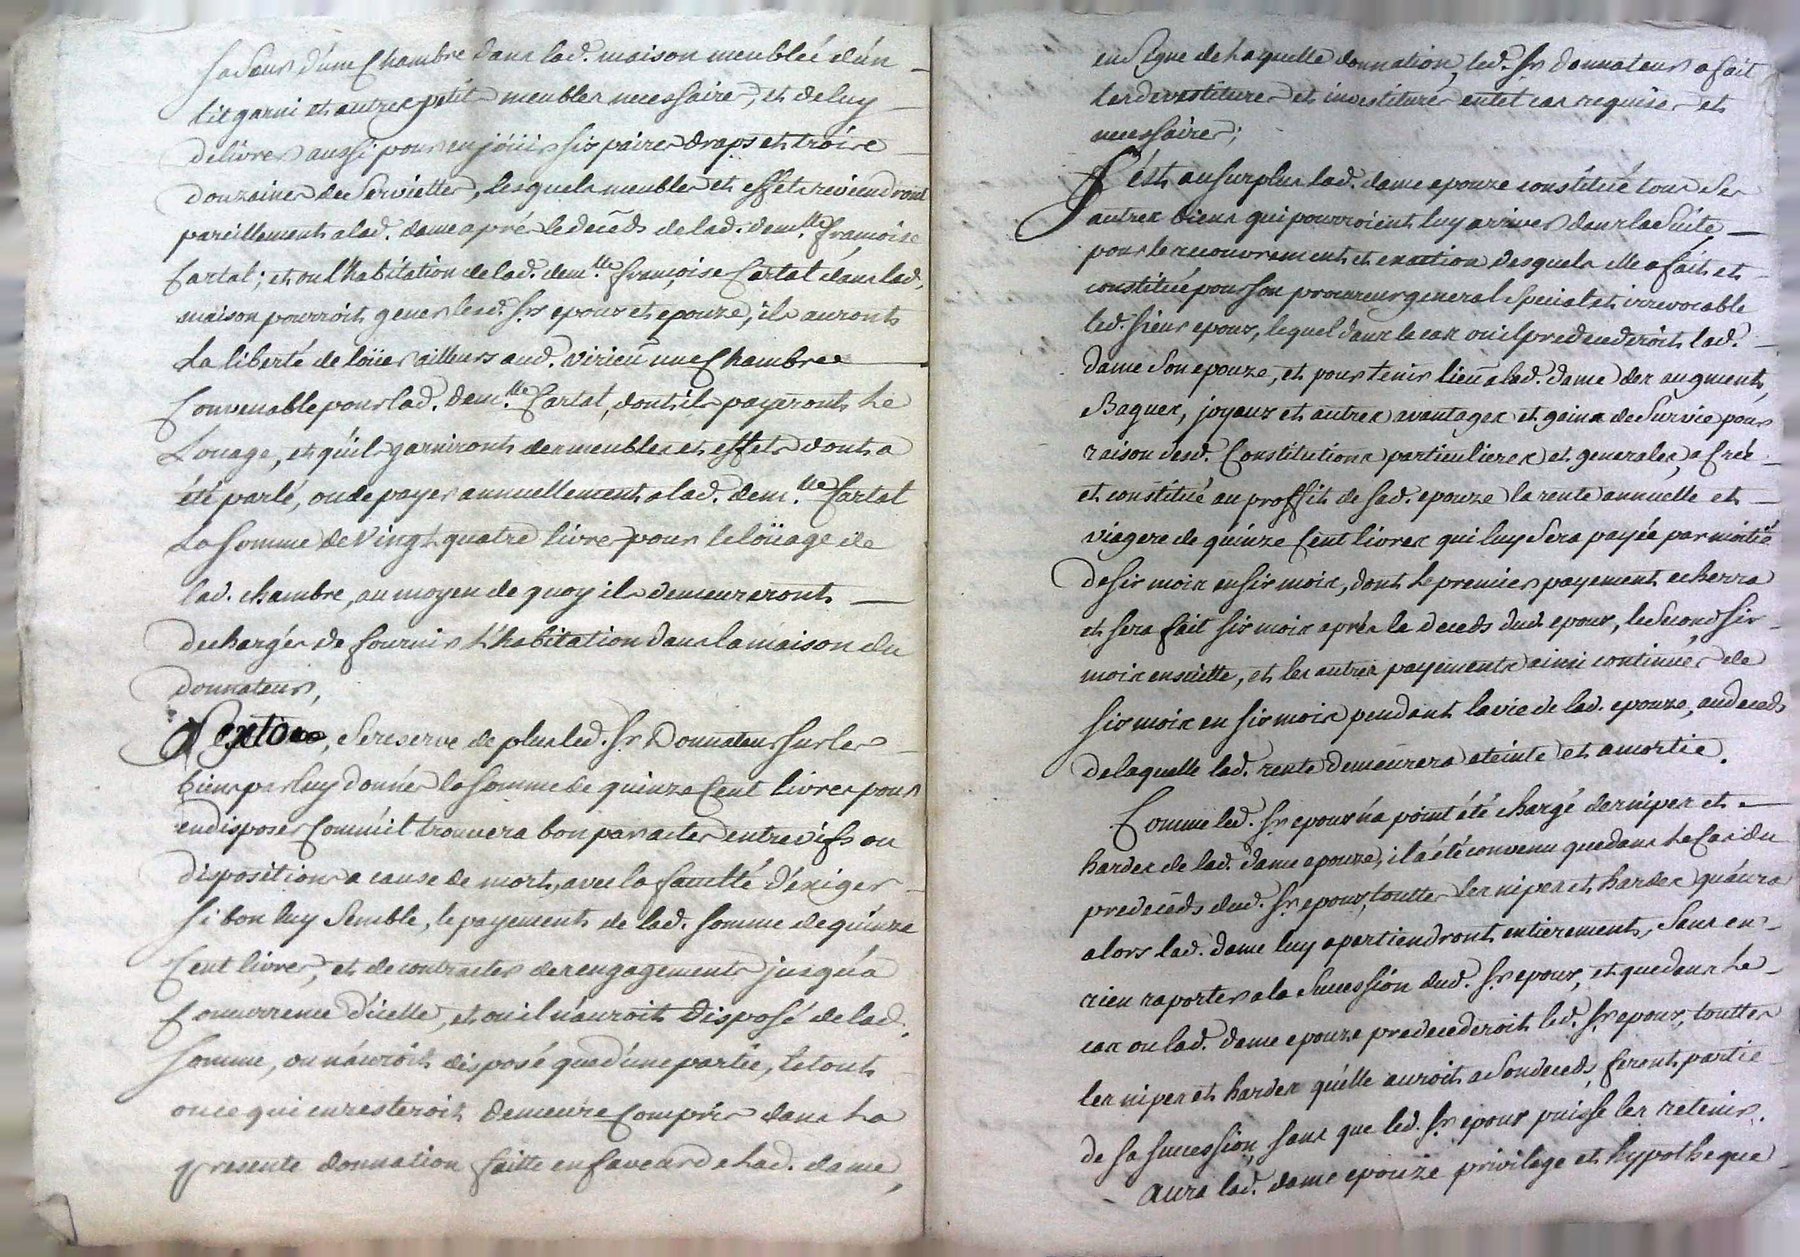 sa Sœur d'une Chambre dans lad. maison meubleé d'un
lit garni et autres petit meubles necessaire, et de luy
delivrer aussi pour en joüir six paires draps et troise
douzaines de Serviettes, lesquels meubles et effets reviendront
pareillement a lad. dame aprés le decéds de lad. dem.lle françoise
Cartal; et ou l'habitation de lad. dem.lle françoise Cartal dans lad.
maison pourroit gener lesd. Srs epoux et epouze, ils auront
La liberté de loüer ailleurs aud. virieu une Chambre
Convenable pour lad. Dem.lle Cartal, dont ils payeront Le
Loüage, et qu'ils garniront des meubles et effets dont a
été parlé, ou de payer annuellement a lad. dem.lle Cartal
La somme de Vingt quatre livres pour le loüage de
lad. chambre, au moyen de quoy ils demeureront
dechargés de fournir L'habitation dans la maison du
donnateur,
Se reserve de plus led. Sr Donnateur sur les
biens par luy donnés la somme de quinze Cent livres pour
en disposer Comm'il trouvera bon par actes entre vifs ou
dispositions a cause de mort, avec la faculté d'exiger
si bon luy Semble, le payement de lad. somme de quinze
Cent livres, et de contracter des engagements jusqu'a
Concurrence d'icelle, et ou il n'auroit disposé de lad.
somme, ou n'auroit disposé que d'une partie, le tout
ou ce qui en resteroit demeure Compris dans La
presente donnation faitte en faveur de Lad. dame,
en Signe de Laquelle donnation, led. Sr donnateur a fait
les devestitures et investitures en tel cas requises et
necessaires;
S'est au surplus lad. dame epouze constitué tous Ses
autres biens qui pourroient luy arriver dans la Suite
pour le recouvrement et exaction desquels elle a fait et
constitué pour son procureur general Special et irrevocable
led. sieur epoux, lequel dans le cas ou il predecederoit lad.
dame Son epouze, et pour tenir lieu a lad. dame des augment,
Bagues, joyaux et autres avantages et gains de Survie pour
raison desd. Constitutions particulieres et generales, a Créé
et constitué au proffit de sad. epouze la rente annuelle et
viagere de quinze Cent livres qui luy Sera payée par moitié
de six mois en six mois, dont Le premier payement echerra
et sera fait six mois aprés le deceds dud. epoux, le Second six
mois ensuitte, et les autres payements ainsi continués de
six mois en six mois pendant la vie de lad. epouze, au deceds
de laquelle lad. rente demeurera eteinte et amortie.
Comme led. Sr epoux n'a point été chargé des nipes et
hardes de lad. dame epouze, il a été convenu que dans Le Cas du
predeceds dud. Sr epoux, touttes les nipes et hardes qu'aura
alors lad. dame luy apartiendront entierement, Sans en
rien raporter a la Succession dud. Sr epoux, et que dans Le
cas ou lad. dame epouze predecederoit led. Sr epoux, touttes
les nipes et hardes qu'elle auroit a Son deceds, feront partie
de sa succession, sans que led. Sr epoux puisse les retenir.
Aura lad. dame epouze privilege et hypotheque